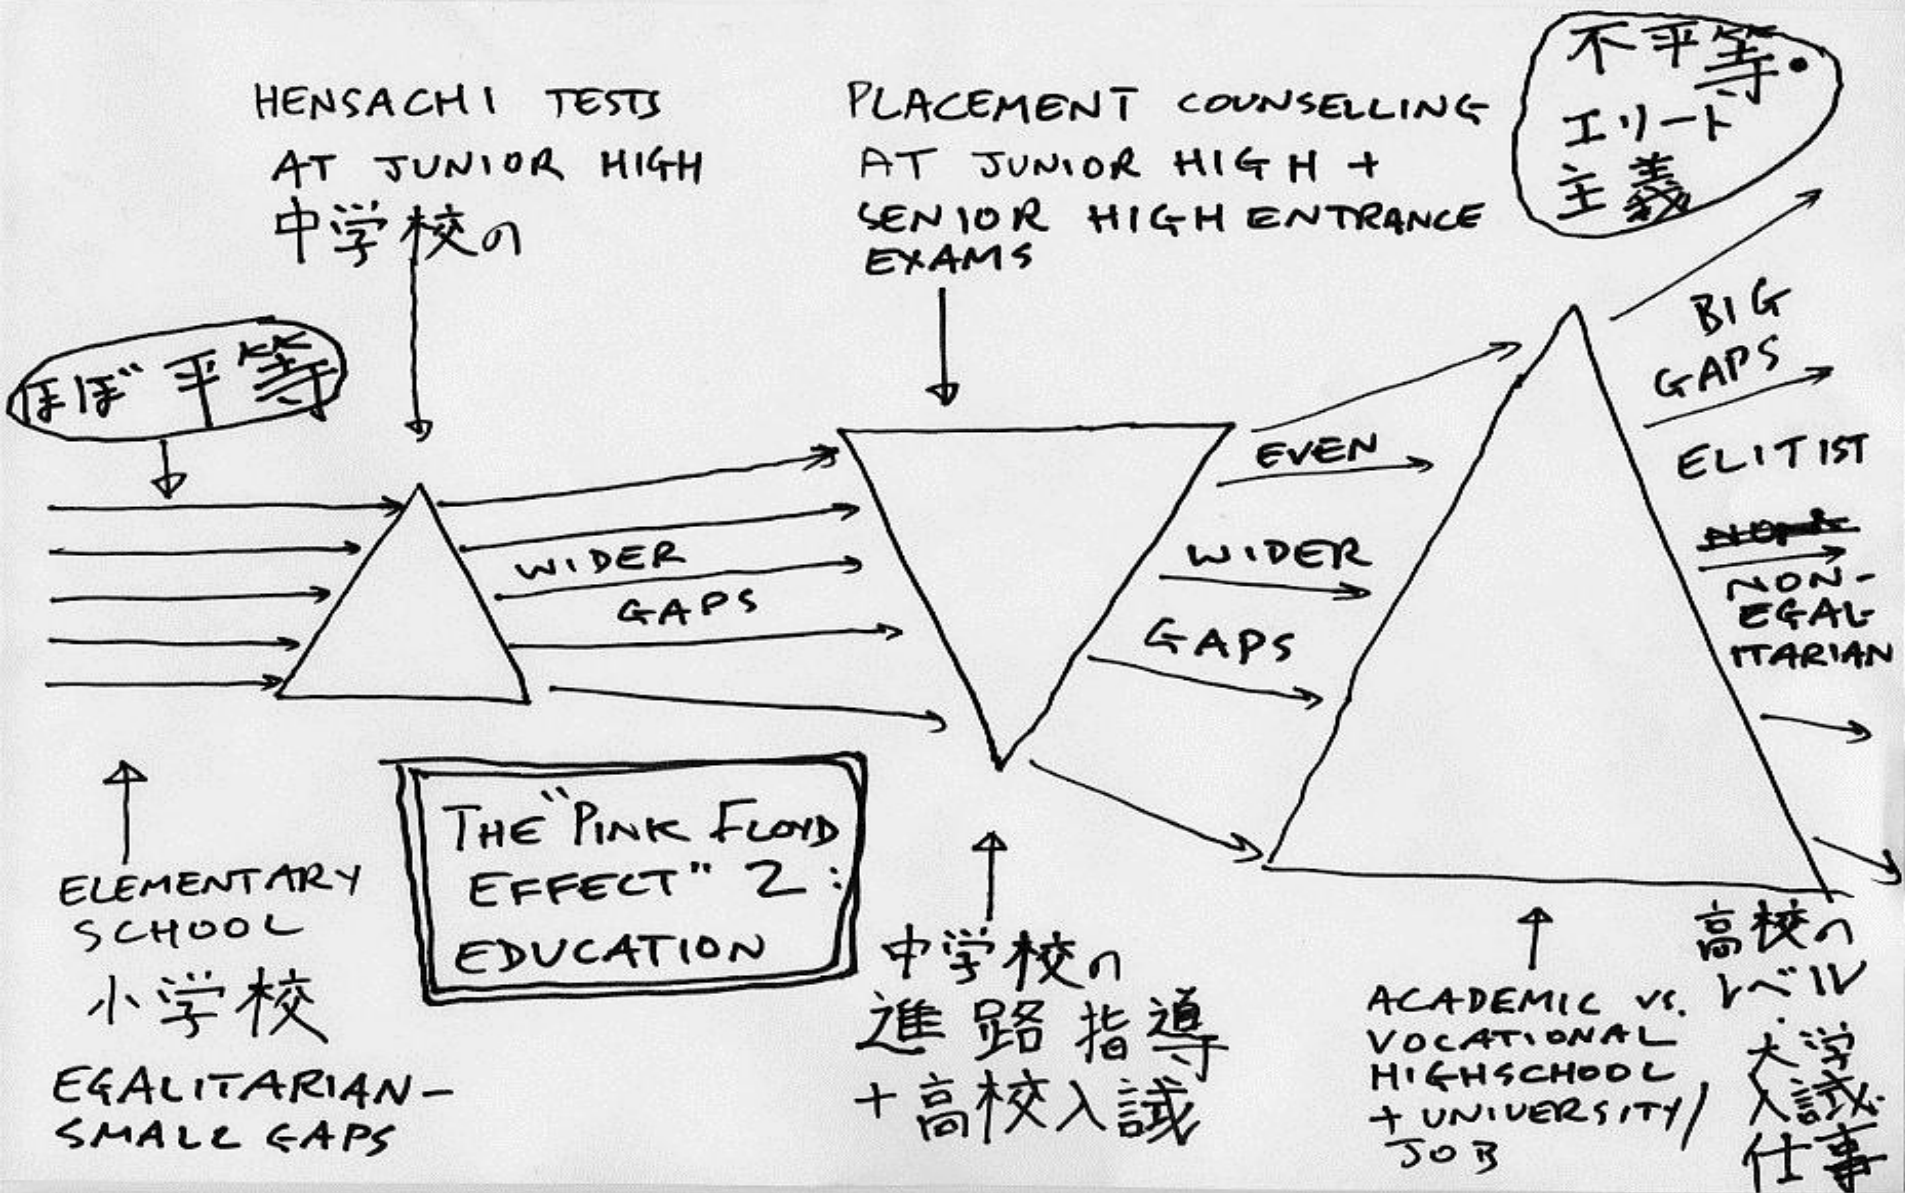 HENSACHI TESTS
AT JUNIOR HIGH
中学校の
PLACEMENT COUNSELLING
AT JUNIOR HIGH +
SENIOR HIGH ENTRANCE
EXAMS
不平等・
エリート
主義
ほぼ平等
WIDER
GAPS
EVEN
WIDER
GAPS
BIG
GAPS
ELITIST
NON-
EGAL-
ITARIAN
ELEMENTARY
SCHOOL
小学校
EGALITARIAN-
SMALL GAPS
THE "PINK FLOYD
EFFECT" 2:
EDUCATION
中学校の
進路指導
+高校入試
ACADEMIC VS.
VOCATIONAL
HIGHSCHOOL
+ UNIVERSITY/
JOB
高校の
レベル・
大学
入試・
仕事